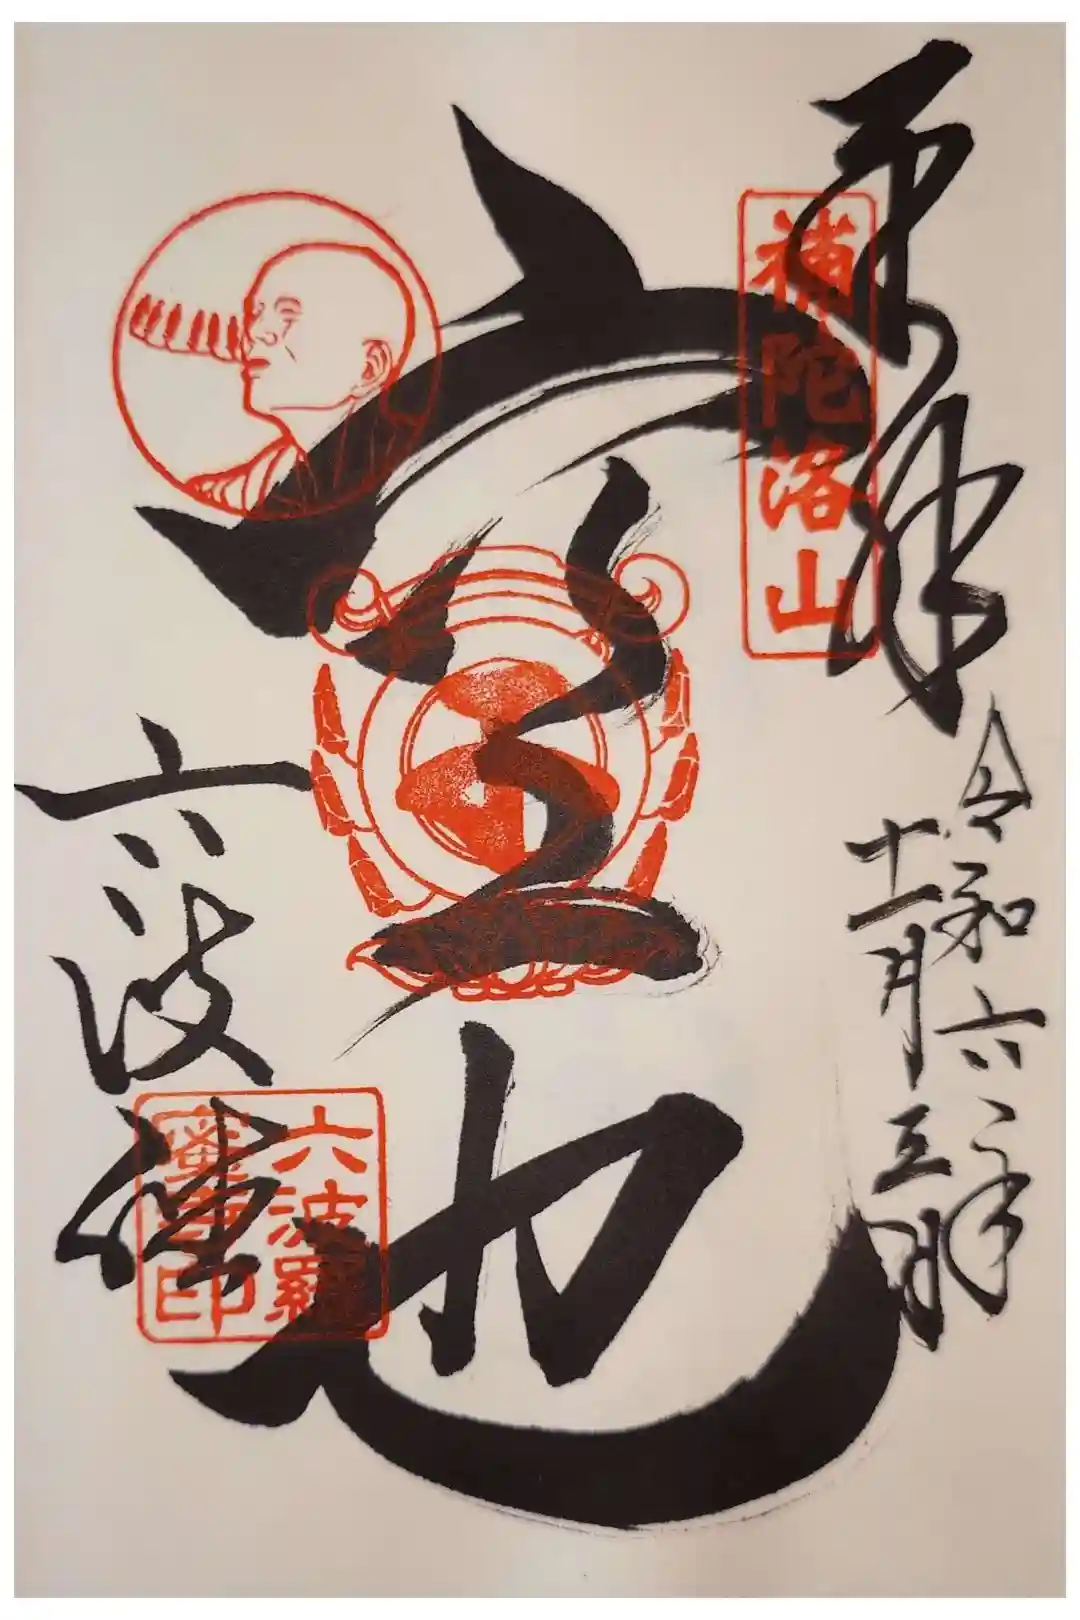 奉拝
補陀洛山
令和六年
十一月
空也
六波羅
六波羅
蜜寺印